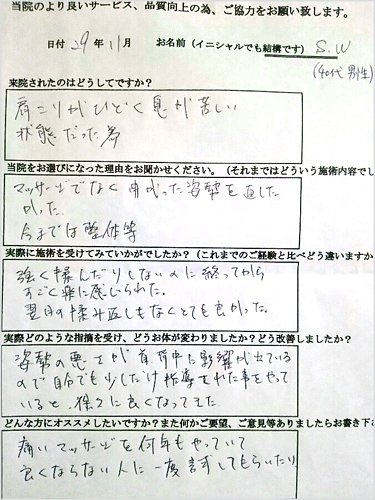 当院のより良いサービス、品質向上の為、ご協力をお願い致します。
日付 29年11月 お名前（イニシャルでも結構です） S.W
(40代 男性)
来院されたのはどうしてですか？
肩こりがひどく息が苦しい
状態だった為
当院をお選びになった理由をお聞かせください。（それまではどういう施術内容でし
マッサージでなく曲がった姿勢を直した
かった。
今までは整体等
実際に施術を受けてみていかがでしたか？（これまでのご経験と比べどう違いますか
強く揉んだりしないのに終ってから
すごく楽に感じられた。
翌日の揉み返しもなくとても良かった。
実際どのような指摘を受け、どうお体が変わりましたか？どう改善しましたか？
姿勢の悪さが首背中に影響が出ている
ので自分でも少しだけ指導された事をやって
いると徐々に良くなってきた
どんな方にオススメしたいですか？また何かご要望、ご意見等ありましたらお書き下さ
痛いマッサージを何年もやっていて
良くならない人に一度試してもらいたい